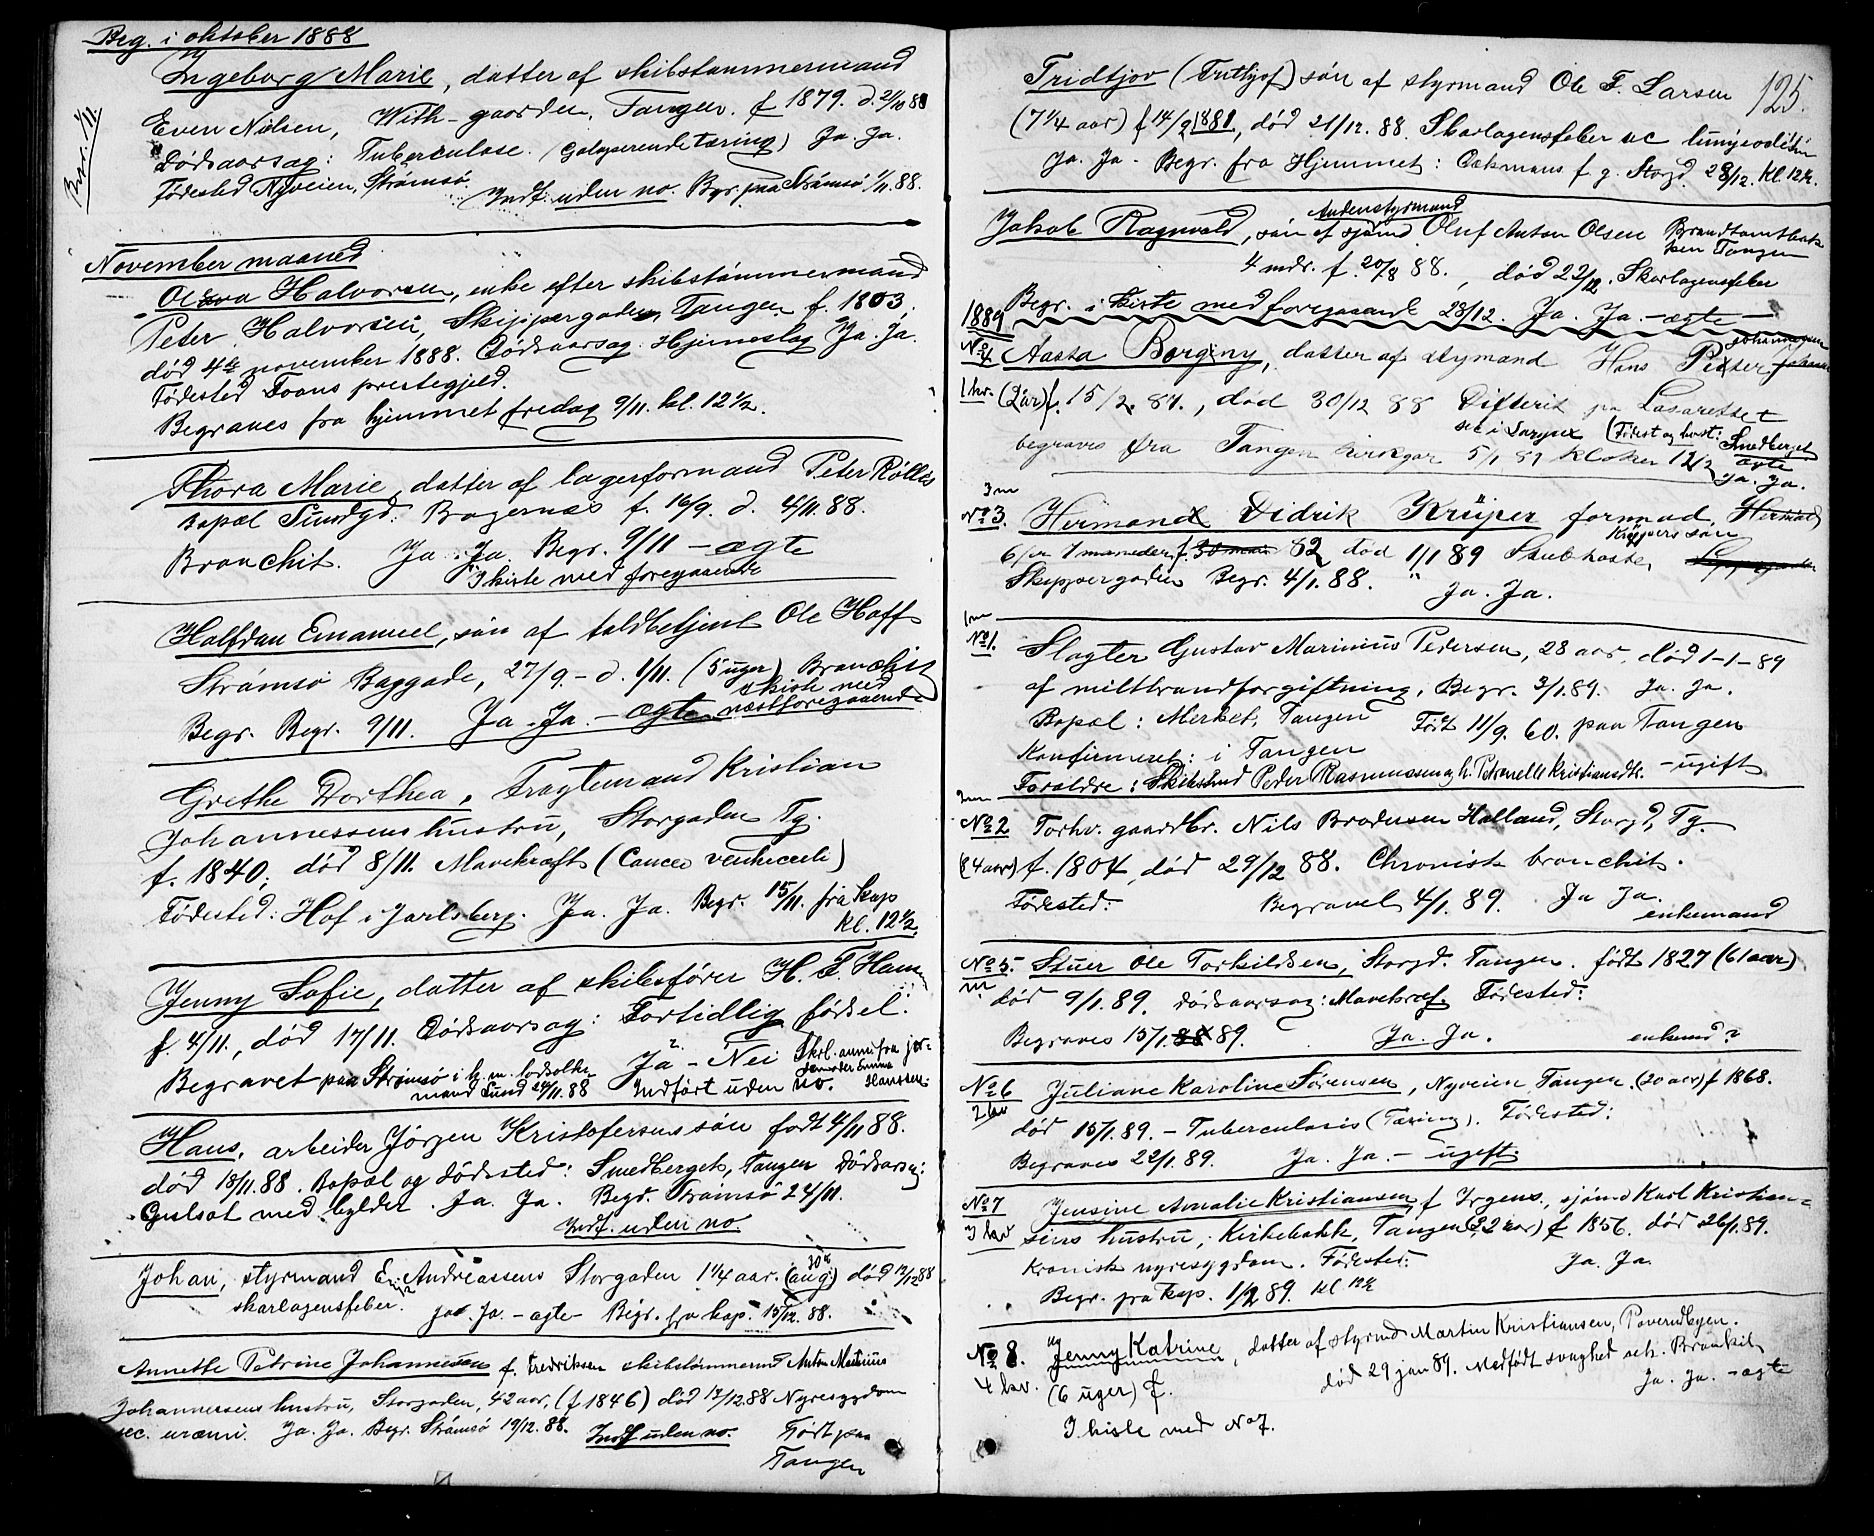 Beg. i oktober 1888
Ingeborg Marie, datter af skibstømmermand
Even Nielsen, With-gaarden, Tangen. f 1879. d. 2/10 88
Dødsaarsag: Tuberculose. (galoperende tæring) Ja. Ja.
Fødested Nyveien, Strømsø. Indf. uden no. Begr. paa Strømsø 1/11. 88.
November maaned
Halvorsen, enke efter skibstømmermand
Peter Halvorsen, Skippergaden, Tangen f. 1803.
død 4de november 1888. Dødsaarsag. Hjerneslag Ja. Ja.
Fødested Foans prestegjeld.
Begraves fra hjemmet fredag 9/11. kl. 12½.
Thora Marie, datter af lagerformand Peter Røllis
Bopæl Sundgd. Bragernæs f. 16/9. d. 4/11. 88.
Bronchit. Ja. Ja. Begr. 9/11 - ægte
I kiste med foregaaende
Halfdan Emanuel, søn af toldbetjent Ole Hoff
Strømsø Baggade, 27/9. - d. 1/11. (5 uger) Bronchit
I kiste med
Begr. Begr. 9/11. Ja. Ja. - ægte næstforegaaende
Grethe Dorthea, Fragtemand Kristian
Johannessens hustru, Storgaden Tg.
f. 1840, død 8/11. Mavekræft (Cancer ventriculi)
Fødested: Hof i Jarlsberg. Ja. Ja. Begr. 15/11. fra kap
kl. 12½.
Jenny Sofie, datter af skibsfører H. F. Hansen
f. 4/11., død 17/11. Dødsaarsag: Fortidlig fødsel.
Begravet paa Strømsø i k. m. lodsolder Ja - Nei Skrl. anm. fra jor-
mand Lund 24/11. 88 Indført uden no. Hanssen
Hans, arbeider Jørgen Kristofersens søn født 4/11 88.
død 18/11. 88. Bopæl og dødssted: Smedberget, Tangen Dødsaarsag:
Gulsot med bylder. Ja. Ja. Begr. Strømsø 24/11.
Indf. uden no.
30te
Johan, styrmand E. Andreassens Storgaden 1¼ aar. (aug.) død 12/12 88
skarlagensfeber. Ja. Ja. - ægte - Begr. fra kap. 15/12. 88.
Annette Petrine Johannesen f. Fredriksen skibstømmermd Anton Martinius
Johannessens hustru, Storgaden, 42 aar, (f 1846) død 12/12. 88 Nyresygdom
sec. uræmi. Ja. Ja. Begr. Strømsø 19/12. 88. Indf uden no. Født paa
Tangen
125.
Fridtjov (Frithjof) søn af styrmand Ole F. Larsen
(7¼ aar) f 14/9 1881, død 21/12. 88. Skarlagensfeber
Ja. Ja. Begr. fra Hjemmet: f. g. Storgd. 28/12. kl. 12½.
Andenstyrmand
Jakob Ragnvald, søn af sjømd Oluf Anton Olsen Brandtomtbak
ken Tangen
4 mdr. f. 20/8 88., død 22/12. Skarlagensfeber
Begr. i kiste med foregaaende 28/12. Ja. Ja. - ægte -
1889
No 4 Aasta Borginy, datter af styrmand Hans Petter Johannesen
1 kv. (2 år) f. 15/2. 87., død 30/12 88 Difterit på Lasarettet
sec i Larynx (Fødest og bost: Smedberget
begraves fra Tangen kirkegår 5/1 89 klokken 12½ ægte
Ja. Ja.
3 m
No 3. Herman Didrik Krüper formand
Krüpers søn
6 år 7 maaneder, f. 82 død 1/1 89 Strubhoste,
Skippergaden Begr. 4/1. 88. Ja. Ja.
1 m
No 1. Slagter Gustav Marinius Pedersen, 28 aar, død 1-1-89
af miltbrandforgiftning, Begr. 3/1. 89. Ja. Ja.
Bopæl: Merket, Tangen Født 11/9. 60. paa Tangen
Konfirmeret: i Tangen
Forældre: Skibstmd Peder Rasmussen og h. Petronelle Kristiansdtr. - ugift
2 m
No 2 Forhv. gaardbr. Nils Brodersen Holland, Storgd, Tg.
(84 aar) f. 1804, død 29/12 88. Chronisk bronchit.
Fødested: Begravet 4/1. 89. Ja Ja.
enkemand
No 5. Stuer Ole Torkildsen, Storgd. Tangen. født 1827 (61 aar)
m død 9/1. 89. Dødsaarsag: Mavekræft. Fødested:
Begraves 15/1. 89. Ja. Ja. enkemd?
No 6 Juliane Karoline Sørensen, Nyveien Tangen. (20 aar) f 1868.
2 kv død 15/1. 89. - Tuberculosis (Tæring). Fødested:
Begraves 22/1. 89. Ja. Ja. - ugift.
No 7 Jensine Amalie Kristiansen, f Irgens, sjømd Karl Kristian-
3 kv sens hustru, Kirkebakk, Tangen (32 aar) f 1856. død 26/1. 89.
Kronisk nyresygdom. Fødested: Ja. Ja.
Begr. fra kap. 1/2 89. kl 12½
No 8. Jenny Katrine, datter af styrmd Martin Kristiansen, Poverudbyen.
4 kv. (6 uger) f. død 29 jan 89. Medfødt svaghed Bronkit
Ja. Ja. - ægte
I kiste med No 7.